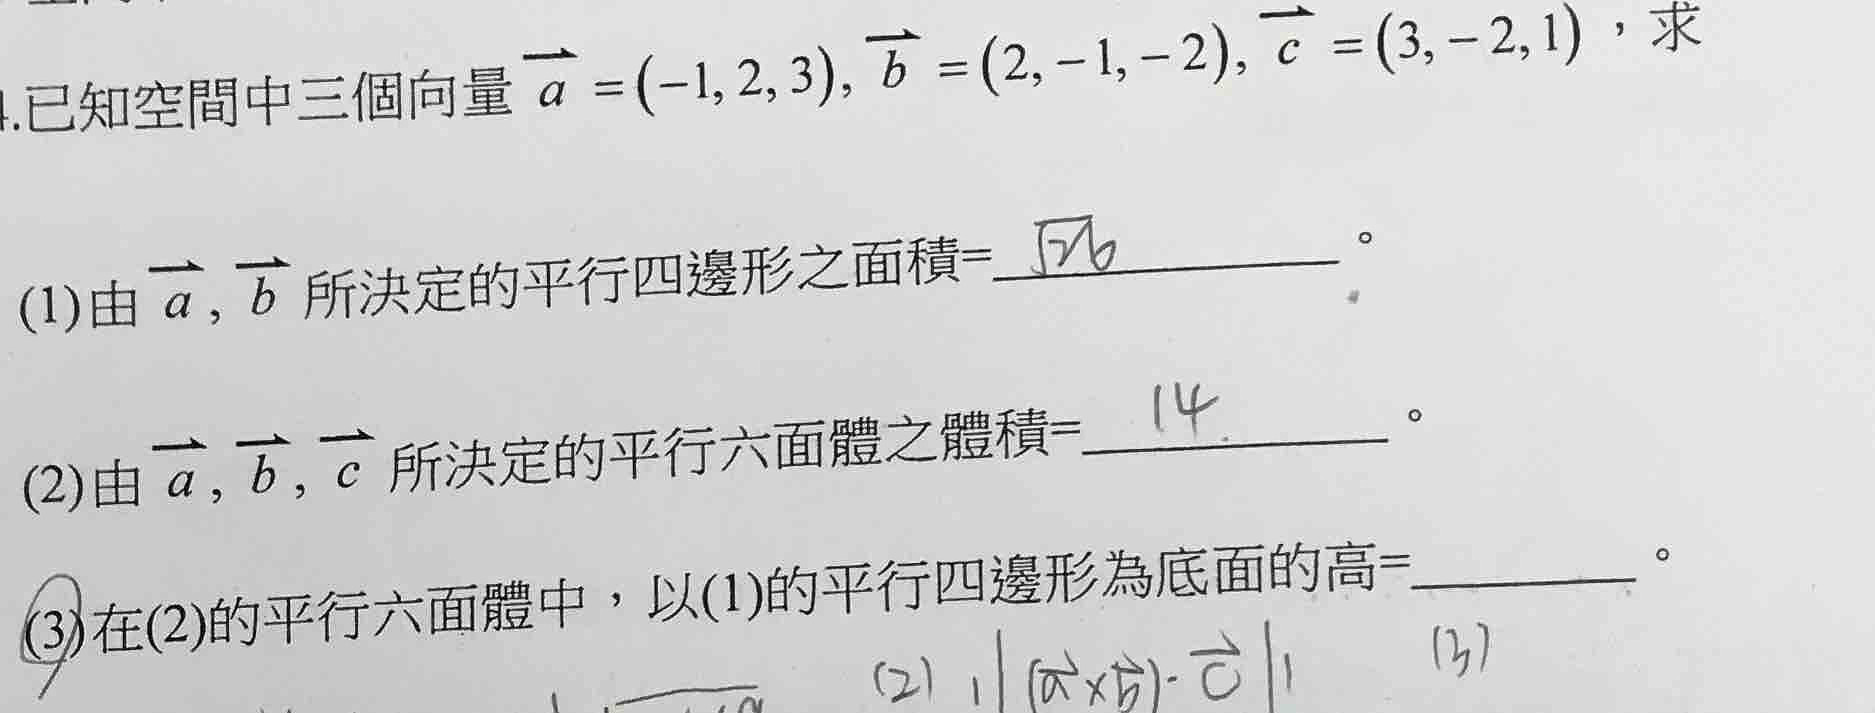 4.已知空間中三個向量 a = (−1, 2, 3), b = (2, −1, −2), c = (3, −2, 1)，求
(1)由 a , b 所決定的平行四邊形之面積= √26 。
(2)由 a , b , c 所決定的平行六面體之體積= 14 。
(3)在(2)的平行六面體中，以(1)的平行四邊形為底面的高= 。
(2) |(a×b)·c| (3)